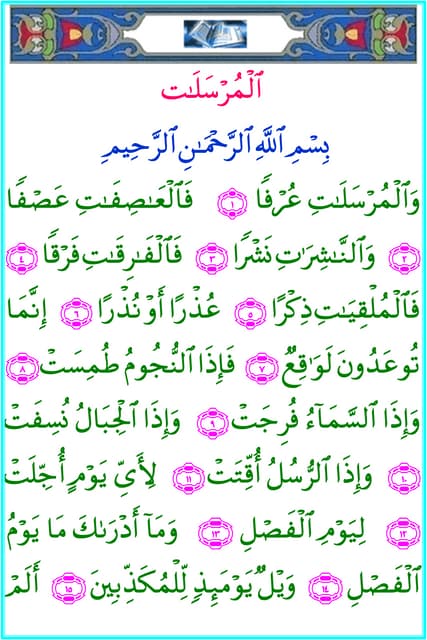 اَلْمُرْسَلَات
بِسْمِ ٱللَّهِ ٱلرَّحْمَٰنِ ٱلرَّحِيمِ
وَٱلْمُرْسَلَٰتِ عُرْفًا ١ فَٱلْعَٰصِفَٰتِ عَصْفًا
٢ وَٱلنَّٰشِرَٰتِ نَشْرًا ٣ فَٱلْفَٰرِقَٰتِ فَرْقًا ٤
فَٱلْمُلْقِيَٰتِ ذِكْرًا ٥ عُذْرًا أَوْ نُذْرًا ٦ إِنَّمَا
تُوعَدُونَ لَوَٰقِعٌ ٧ فَإِذَا ٱلنُّجُومُ طُمِسَتْ ٨
وَإِذَا ٱلسَّمَآءُ فُرِجَتْ ٩ وَإِذَا ٱلْجِبَالُ نُسِفَتْ
١٠ وَإِذَا ٱلرُّسُلُ أُقِّتَتْ ١١ لِأَىِّ يَوْمٍ أُجِّلَتْ
١٢ لِيَوْمِ ٱلْفَصْلِ ١٣ وَمَآ أَدْرَىٰكَ مَا يَوْمُ
ٱلْفَصْلِ ١٤ وَيْلٌ يَوْمَئِذٍ لِّلْمُكَذِّبِينَ ١٥ أَلَمْ